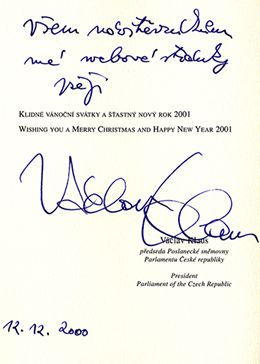 Všem návštěvníkům
mé webové stránky
přeji
KLIDNÉ VÁNOČNÍ SVÁTKY A ŠŤASTNÝ NOVÝ ROK 2001
WISHING YOU A MERRY CHRISTMAS AND HAPPY NEW YEAR 2001
Václav Klaus
Václav Klaus
předseda Poslanecké sněmovny
Parlamentu České republiky
President
Parliament of the Czech Republic
12. 12. 2000